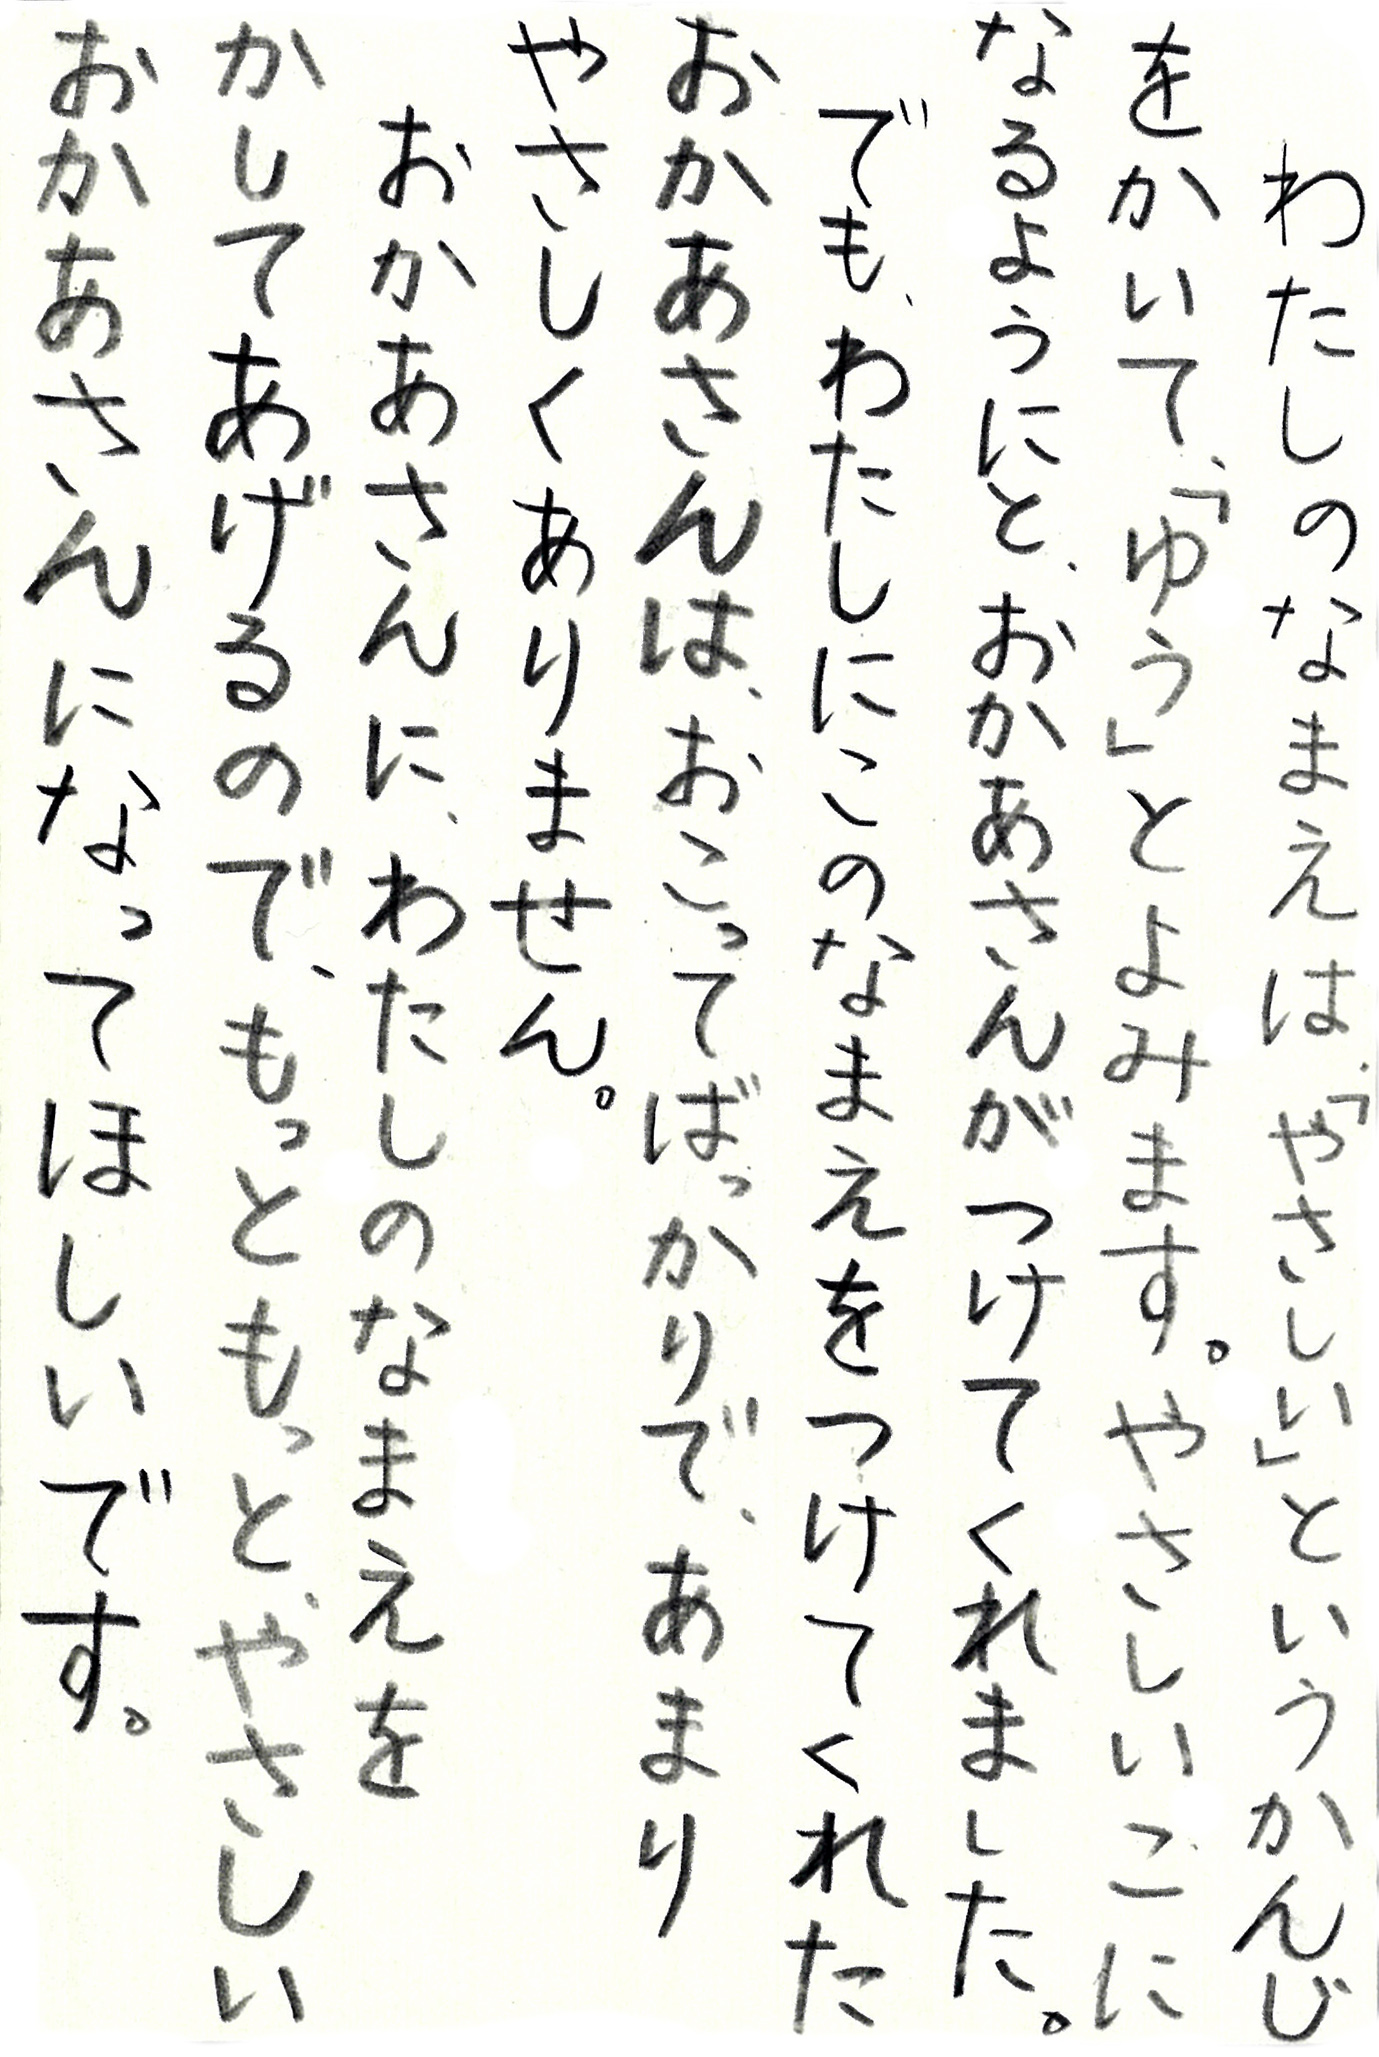 わたしのなまえは、「やさしい」というかんじ
をかいて、「ゆう」とよみます。やさしいこに
なるようにと、おかあさんがつけてくれました。
でも、わたしにこのなまえをつけてくれた
おかあさんは、おこってばっかりで、あまり
やさしくありません。
おかあさんに、わたしのなまえを
かしてあげるので、もっともっと、やさしい
おかあさんになってほしいです。